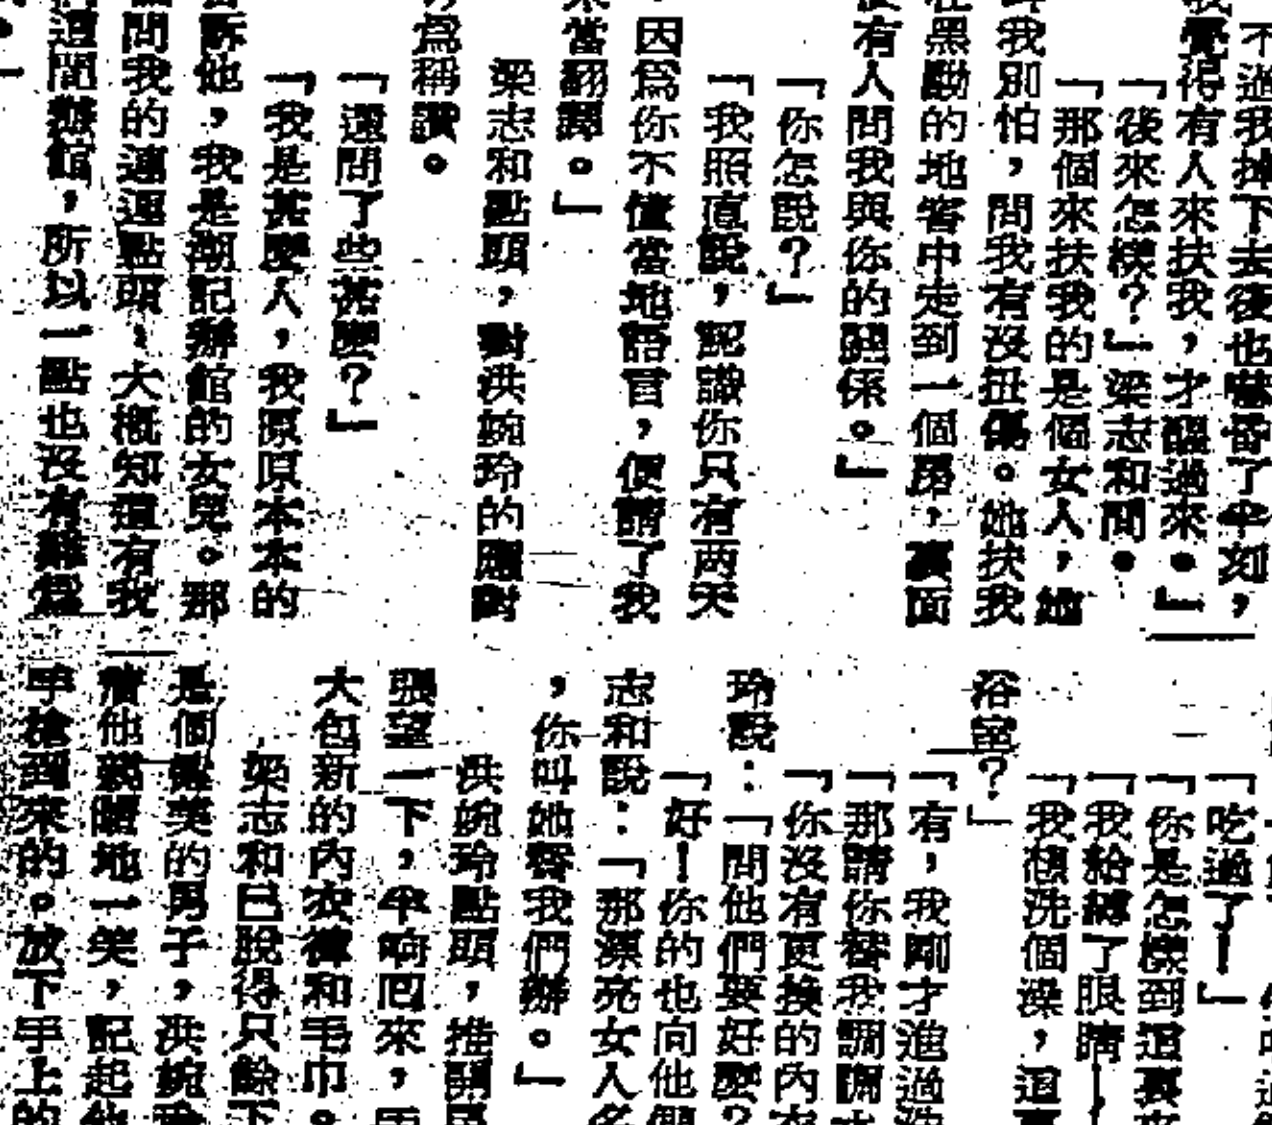 不過我掉下去後也嚇昏了半刻，
我覺得有人來扶我，才醒過來。」
「後來怎樣？」梁志和問。
「那個來扶我的是個女人，她
我別怕，問我有沒扭傷。她扶我
在黑黝的地窖中走到一個房，裏面
沒有人問我與你的關係。」
「你怎說？」
「我照直說，認識你只有両天
，因爲你不懂當地語言，便請了我
來當翻譯。」
梁志和點頭，對洪婉玲的應對
爲稱讚。
「還問了些甚麼？」
「我是甚麼人，我原原本本的
訴他，我是潮記辦館的女兒。那
個問我的連連點頭，大概知道有我
這間辦館，所以一點也沒有難爲
。」
「吃過了！」
「你是怎樣到這裏來
「我給縛了眼睛—
「我想洗個澡，這裏
浴室？」
「有，我剛才進過洗
「那請你替我調調水
「你沒有更換的內衣
玲說：「問他們要好麼？
「好！你的也向他們
志和說：「那漂亮女人名
，你叫她替我們辦。」
洪婉玲點頭，推開房
張望一下，半晌囘來，両
大包新的內衣褲和毛巾。
梁志和已脫得只餘下
是個健美的男子，洪婉玲
着他靦腆地一笑，記起他
手搶到來的。放下手上的